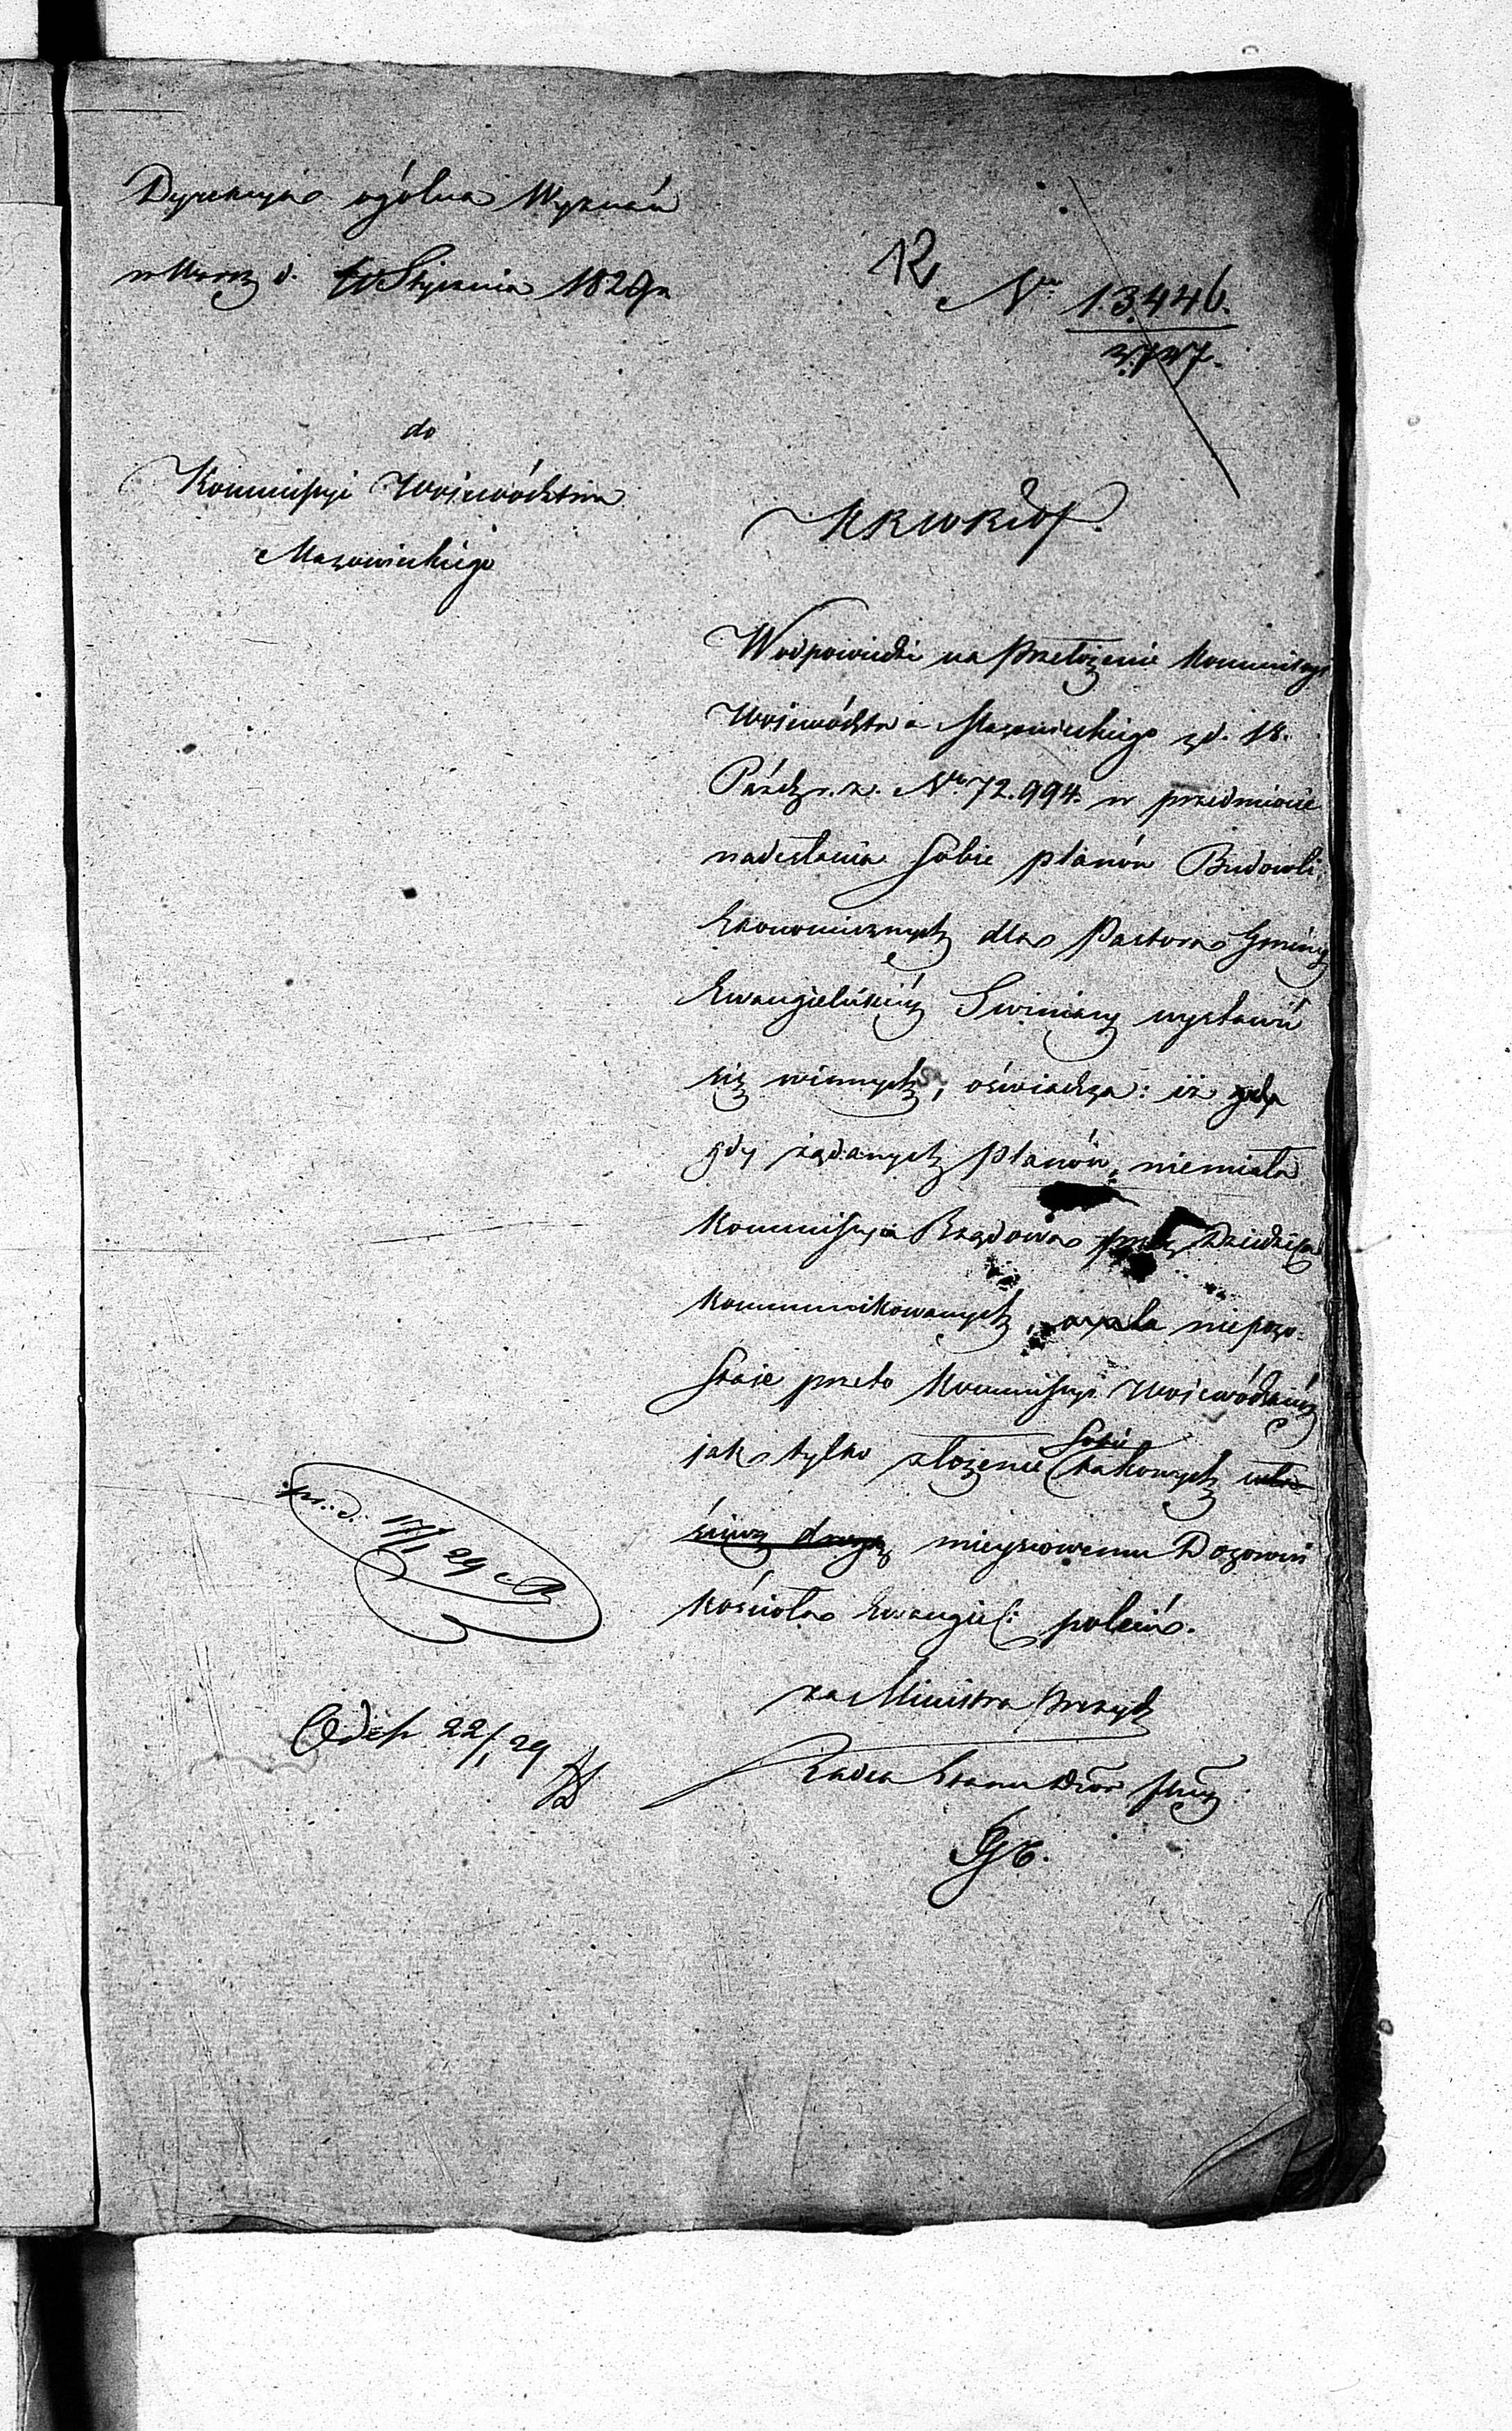 Dyrekcya ogólna Wyznań
w Warsz d. Stycznia 1829 r
12
Nro 13.446.
3.737.
do
Kommissyi Województwa
Mazowieckiego
KRWRiOP.
W odpowiedzi na przełożenie Kommissyi
Województwa Mazowieckiego z d. 18.
Paźdz. r. z. Nro 72.994. w przedmiocie
nadesłania sobie planów Budowli
Ekonomicznych dla Pastora Gminy
Ewangielickiéy Swiniary wystawić
się winnych, oświadcza: iż
gdy żądanych planów, niemiała
Kommissya Rządowa przez Dziedzica
kommunikowanych, niepozo-
staie przeto Kommissyi Województwa
jak tylko złożenie sobie takowych
miejscowemu Dozorowi
kościoła Ewangiel: polecić.
za Ministra Prezyd
Radca Stanu
pr. d. 17/1 29
Odesł. 22/1 29